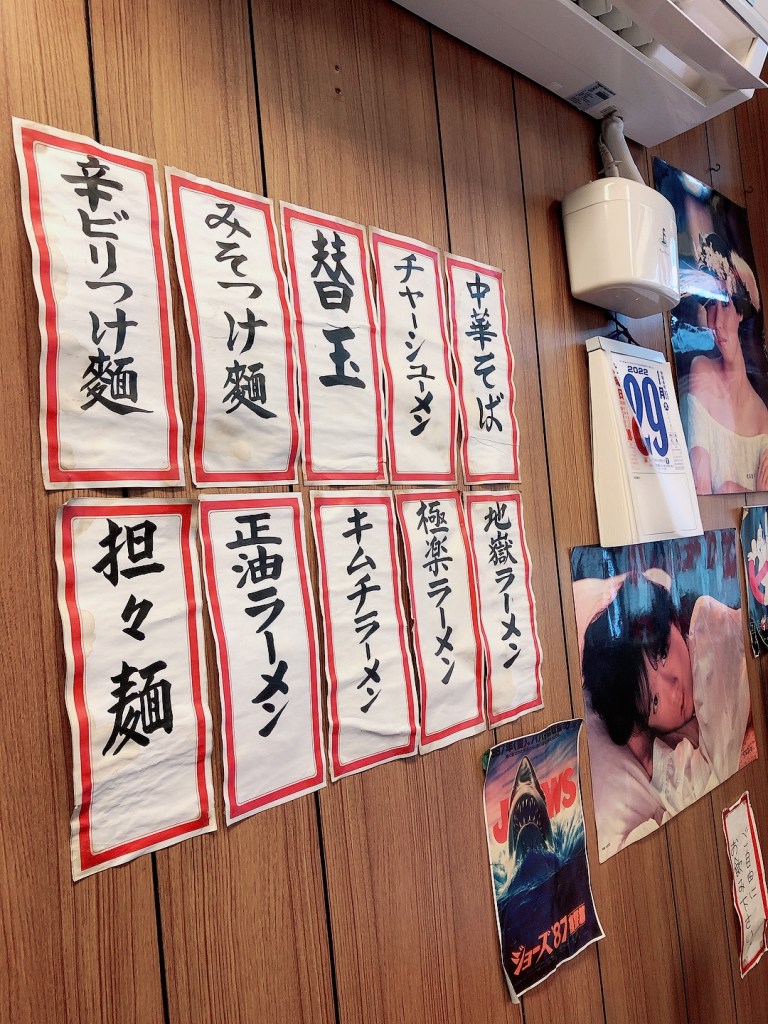 中華そば
チャーシューメン
替玉
みそつけ麺
辛ビリつけ麺
地嶽ラーメン
極楽ラーメン
キムチラーメン
正油ラーメン
担々麺
2022
1月
29
JAWS
ジョーズ'87